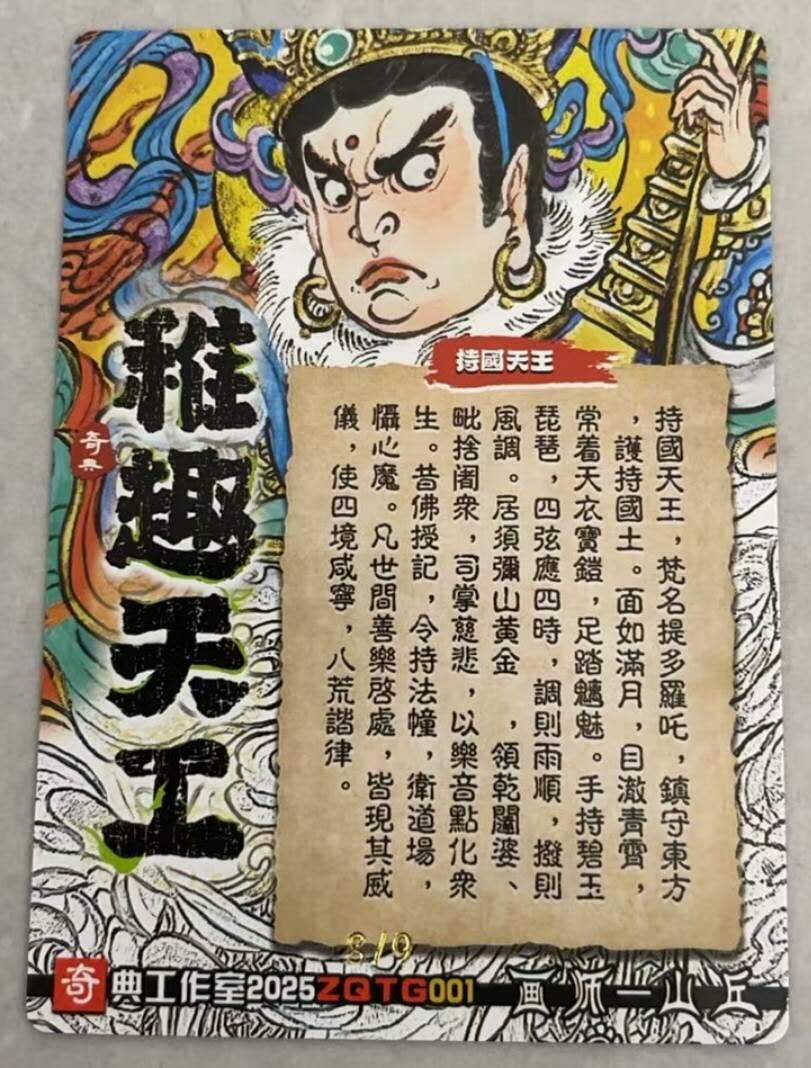 稚趣天工
奇典
持國天王
持國天王，梵名提多羅吒，鎮守東方
，護持國土。面如滿月，目澈青霄，
常着天衣寶鎧，足踏魑魅。手持碧玉
琵琶，四弦應四時，調則雨順，撥則
風調。居須彌山黃金　，領乾闥婆、
毗捨闍衆，司掌慈悲，以樂音點化衆
生。昔佛授記，令持法幢，衛道場，
懾心魔。凡世間善樂啓處，皆現其威
儀，使四境咸寧，八荒諧律。
8/9
奇典工作室2025ZQTG001 画师—山丘